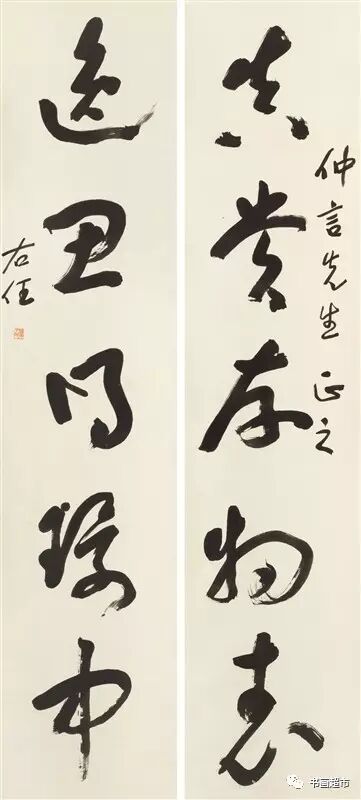 仲言先生正之
真賞存物表
逸思得環中
右任
书画超市